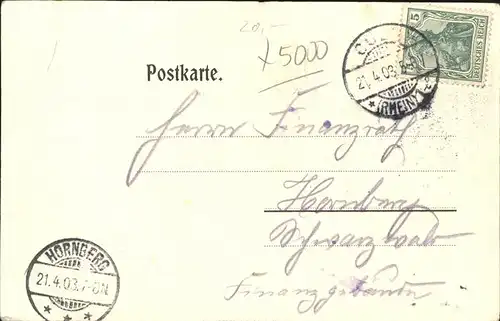 20,-
x5000
5
DEUTSCHES REICH
21.4.03.
*(RHEIN)1.*
Postkarte.
Herrn Finanzrath
Hornberg
Schwarzwald
Finanzgebäude
HORNBERG
21.4.03.7-8N
* * *